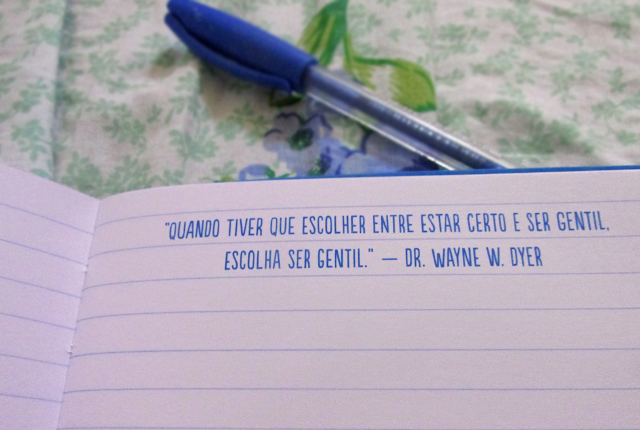 "QUANDO TIVER QUE ESCOLHER ENTRE ESTAR CERTO E SER GENTIL,
ESCOLHA SER GENTIL." — DR. WAYNE W. DYER